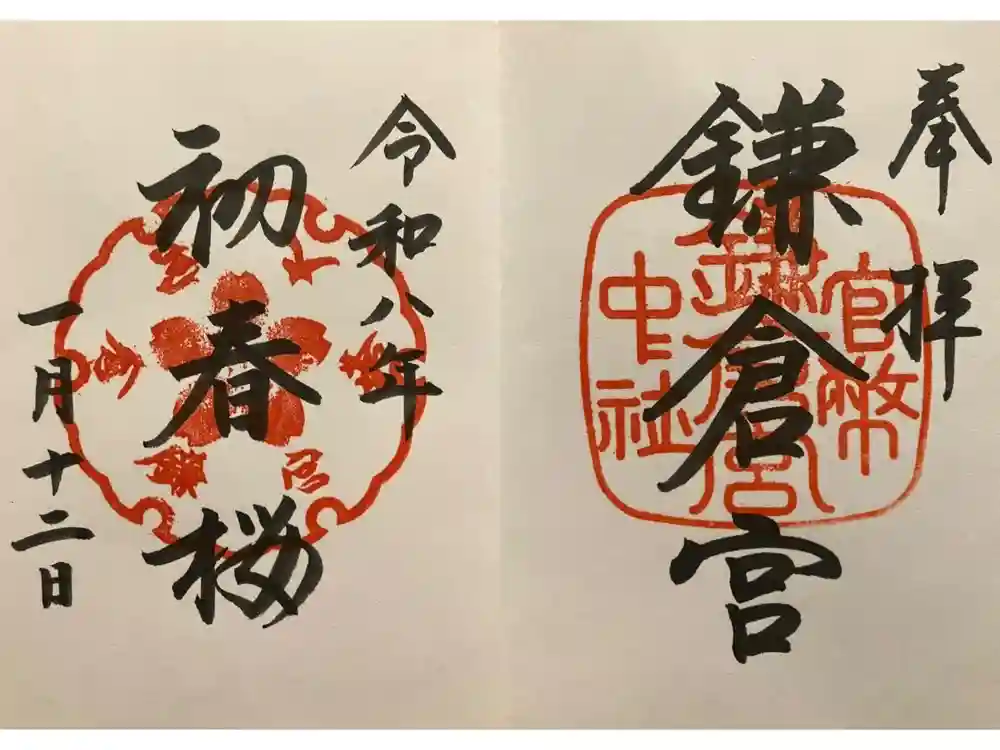 奉拝
鎌倉宮
官幣
鎌倉宮
中社
令和八年
初春桜
一月十二日